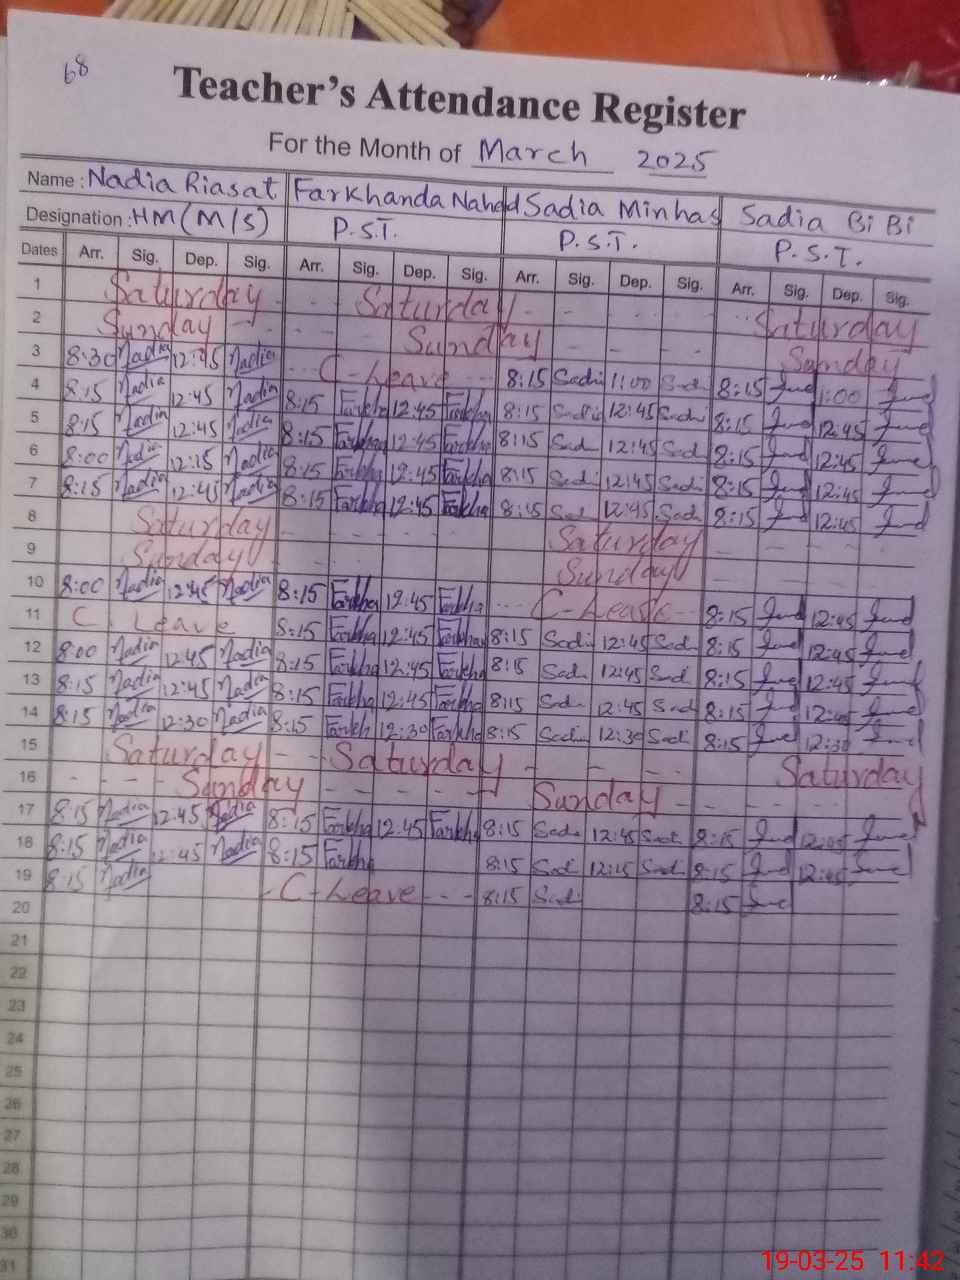 68
Teacher's Attendance Register
For the Month of March 2025
Name : Nadia Riasat Farkhanda Nahed Sadia Minhas Sadia Bi Bi
Designation : HM (M/S) P.S.T. P.S.T. P.S.T.
Dates Arr. Sig. Dep. Sig. Arr. Sig. Dep. Sig. Arr. Sig. Dep. Sig. Arr. Sig. Dep. Sig.
1 Saturday Saturday Saturday
2 Sunday Sunday Sunday
3 8:30 Nadia 12:45 Nadia C-Leave 8:15 Sadi 1:00 Sadi 8:15 1:00
4 8:15 Nadia 12:45 Nadia 8:15 Farkha 12:45 Farkha 8:15 Sadi 12:45 Sadi 8:15 12:45
5 8:15 Nadia 12:45 Nadia 8:15 Farkha 12:45 Farkha 8:15 Sad 12:45 Sad 8:15 12:45
6 8:00 Nadia 12:15 Nadia 8:15 Farkha 12:45 Farkha 8:15 Sadi 12:45 Sadi 8:15 12:45
7 8:15 Nadia 12:45 Nadia 8:15 Farkha 12:45 Farkha 8:15 Sad 12:45 Sadi 8:15 12:45
8 Saturday Saturday
9 Sunday Sunday
10 8:00 Nadia 12:45 Nadia 8:15 Farkha 12:45 Farkha C-Leave 8:15 12:45
11 C. Leave 8:15 Farkha 12:45 Farkha 8:15 Sadi 12:45 Sad 8:15 12:45
12 8:00 Nadia 12:45 Nadia 8:15 Farkha 12:45 Farkha 8:15 Sad 12:45 Sad 8:15 12:45
13 8:15 Nadia 12:45 Nadia 8:15 Farkha 12:45 Farkha 8:15 Sad 12:45 Sad 8:15 12:45
14 8:15 Nadia 12:30 Nadia 8:15 Farkh 12:30 Farkha 8:15 Sadi 12:30 Sadi 8:15 12:30
15 Saturday Saturday Saturday
16 Sunday Sunday
17 8:15 Nadia 12:45 Nadia 8:15 Farkha 12:45 Farkha 8:15 Sadi 12:45 Sadi 8:15
18 8:15 Nadia 12:45 Nadia 8:15 Farkha 8:15 Sad 12:45 Sadi 8:15 12:45
19 8:15 Nadia C-Leave 8:15 Sadi 8:15
20
21
22
23
24
25
26
27
28
29
30
31
19-03-25 11:42